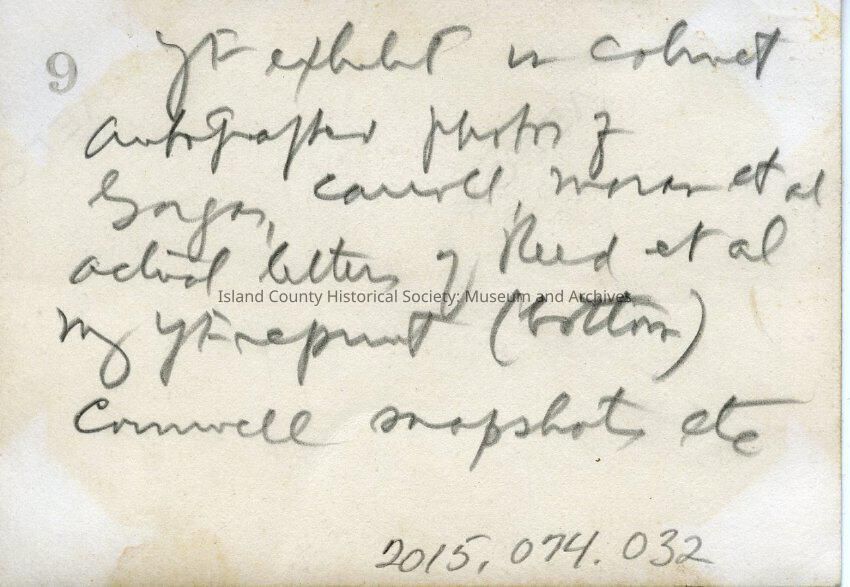 9
YF exhibit in cabinet
autographed photos of
Gorgas, Carroll, Moran et al
actual letters of Reed et al
Island County Historical Society: Museum and Archives
my YF reprint (bottom)
Cornwell snapshots etc
2015.074.032